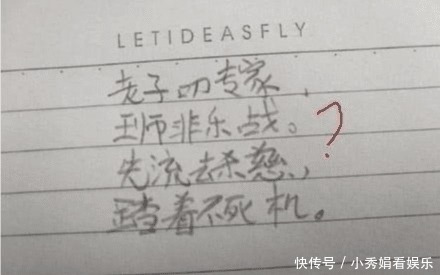 LETIDEASFLY
老子叨专家，
王师非乐战。
先流去杀慈，
踏着不死机。
?
快传号 / 小秀娟看娱乐